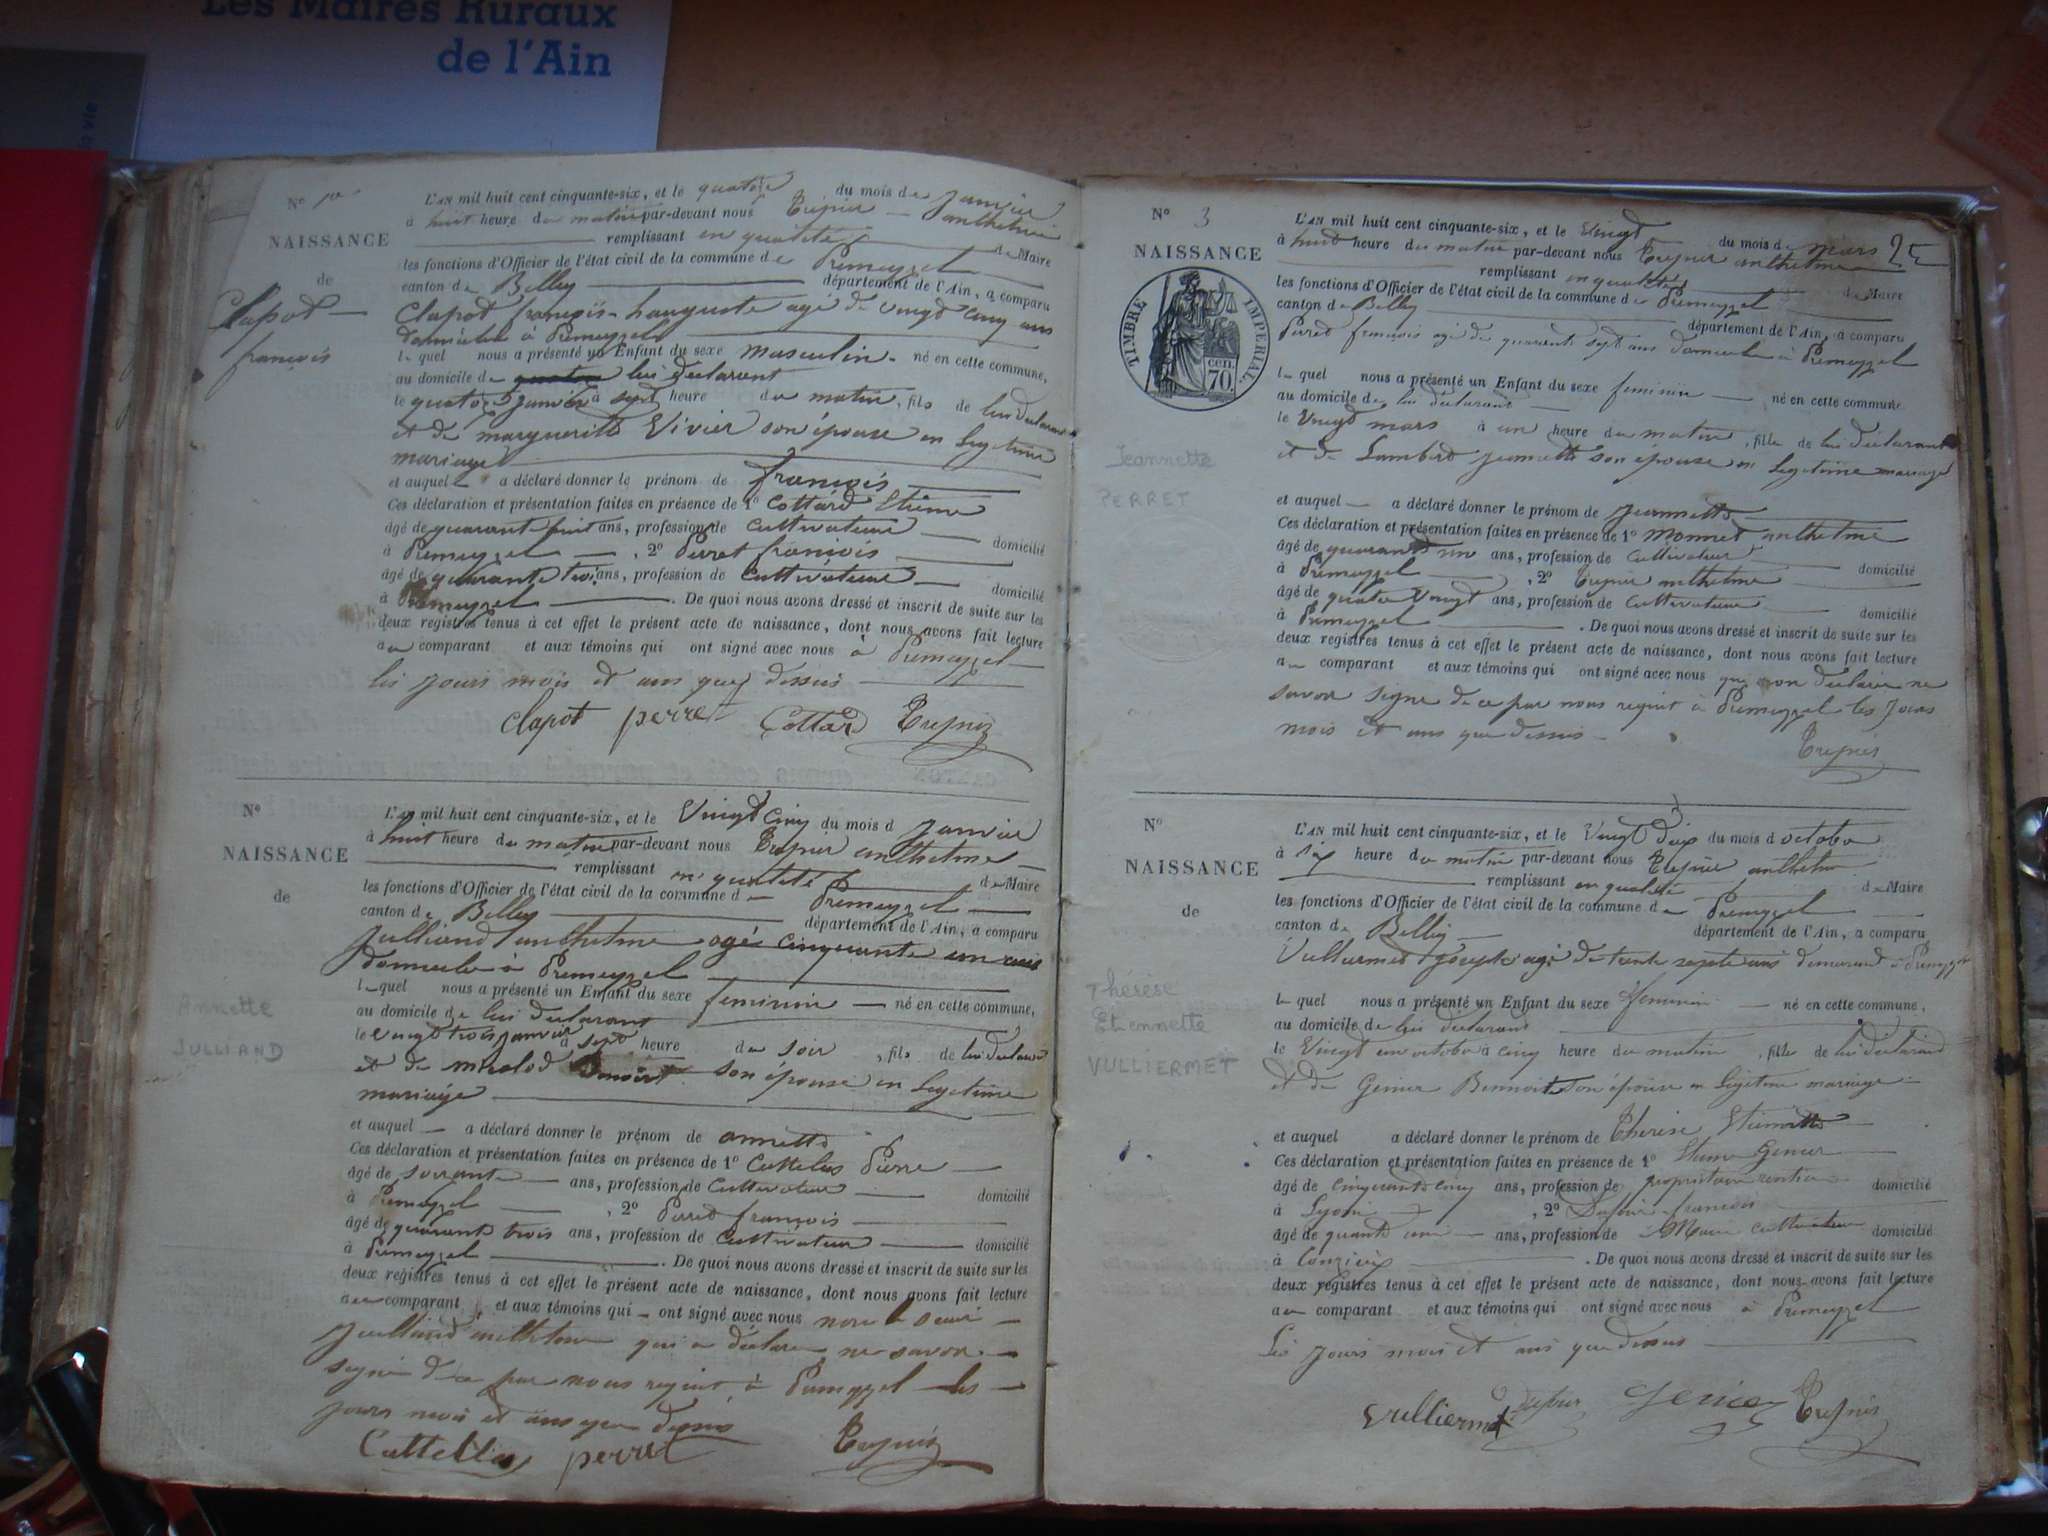 Les Maires Ruraux
de l'Ain
vie
N° 1er
NAISSANCE
de
Clapot
françois
L'AN mil huit cent cinquante-six, et le quatorze du mois de janvier
à huit heure du matin par-devant nous Trepier anthelme
remplissant en qualité de Maire
les fonctions d'Officier de l'état civil de la commune de Premeyzel
canton de Belley département de l'Ain, a comparu
Clapot françois hauguste agé de vingt cinq ans
domicilié à Premeyzel
lequel nous a présenté un Enfant du sexe masculin né en cette commune,
au domicile de lui déclarant
le quatorze janvier à sept heure du matin, fils de lui déclarant
et de marguerite Vivier son épouse en legetime
mariage
et auquel a déclaré donner le prénom de françois
Ces déclaration et présentation faites en présence de 1° Cottard Etiene
âgé de quarante huit ans, profession de Cultivateur domicilié
à Premeyzel, 2° Perret françois
âgé de quarante trois ans, profession de Cultivateur domicilié
à Premeyzel. De quoi nous avons dressé et inscrit de suite sur les
deux registres tenus à cet effet le présent acte de naissance, dont nous avons fait lecture
au comparant et aux témoins qui ont signé avec nous à Premeyzel
les jours mois et ans que dessus
Clapot perret Cottard Trepier
N°
NAISSANCE
de
Annette
JULLIAND
L'AN mil huit cent cinquante-six, et le Vingt cinq du mois d janvier
à huit heure du matin par-devant nous Trepier anthelme
remplissant en qualité de Maire
les fonctions d'Officier de l'état civil de la commune de Premeyzel
canton de Belley département de l'Ain, a comparu
Julliand anthelme agé cinquante un ans
domicilié à Premeyzel
lequel nous a présenté un Enfant du sexe feminin né en cette commune,
au domicile de lui declarant
le vingt trois janvier à sept heure du soir, fils de lui declarant
et de son épouse en legetime
mariage
et auquel a déclaré donner le prénom de annette
Ces déclaration et présentation faites en présence de 1° Pierre
âgé de soixante ans, profession de Cultivateur domicilié
à Premeyzel, 2° Perret françois
âgé de quarante trois ans, profession de Cultivateur domicilié
à Premeyzel. De quoi nous avons dressé et inscrit de suite sur les
deux registres tenus à cet effet le présent acte de naissance, dont nous avons fait lecture
au comparant et aux témoins qui ont signé avec nous non le
Julliand anthelme qui a déclaré ne savoir
signé de ce par nous requit à Premeyzel les
jours mois et ans que dessus
perret Trepier
N° 3
NAISSANCE
TIMBRE IMPERIAL
70 CEN.
Jeannette
PERRET
L'AN mil huit cent cinquante-six, et le Vingt du mois de mars 25
à huit heure du matin par-devant nous Trepier anthelme
remplissant en qualité de Maire
les fonctions d'Officier de l'état civil de la commune de Premeyzel
canton de Belley département de l'Ain, a comparu
Perret francois agé de quarante sept ans domicilié à Premeyzel
lequel nous a présenté un Enfant du sexe feminin né en cette commune
au domicile de lui déclarant
le Vingt mars à un heure du matin, fille de lui déclarant
et de Lambert jeannette son épouse en legetime mariage
et auquel a déclaré donner le prénom de jeannette
Ces déclaration et présentation faites en présence de 1° Monnet anthelme
âgé de quarante un ans, profession de Cultivateur domicilié
à Premeyzel, 2° Trepier anthelme
âgé de quatre vingt ans, profession de Cultivateur domicilié
à Premeyzel. De quoi nous avons dressé et inscrit de suite sur les
deux registres tenus à cet effet le présent acte de naissance, dont nous avons fait lecture
au comparant et aux témoins qui ont signé avec nous ne
savoir signe de ce par nous requit à Premeyzel les jours
mois et ans que dessus
Trepier
N°
NAISSANCE
de
Thérèse
Etiennette
VULLIERMET
L'AN mil huit cent cinquante-six, et le Vingt deux du mois d octobre
à six heure du matin par-devant nous Trepier anthelme
remplissant en qualité de Maire
les fonctions d'Officier de l'état civil de la commune de Premeyzel
canton de Belley département de l'Ain, a comparu
Vulliermet joseph agé de trente sept ans demeurant à Premeyzel
lequel nous a présenté un Enfant du sexe feminin né en cette commune,
au domicile de lui déclarant
le Vingt un octobre à cinq heure du matin, fille de lui déclarant
et de Genier Bennoite son épouse en legetime mariage
et auquel a déclaré donner le prénom de Therese Etiennette
Ces déclaration et présentation faites en présence de 1° Etiene Genier
âgé de cinquante cinq ans, profession de propriétaire rentier domicilié
à Lyon, 2° Dufour francois
âgé de ans, profession de Cultivateur domicilié
à. De quoi nous avons dressé et inscrit de suite sur les
deux registres tenus à cet effet le présent acte de naissance, dont nous avons fait lecture
au comparant et aux témoins qui ont signé avec nous à Premeyzel
Les jours mois et ans que dessus
Vulliermet Dufour Genier Trepier